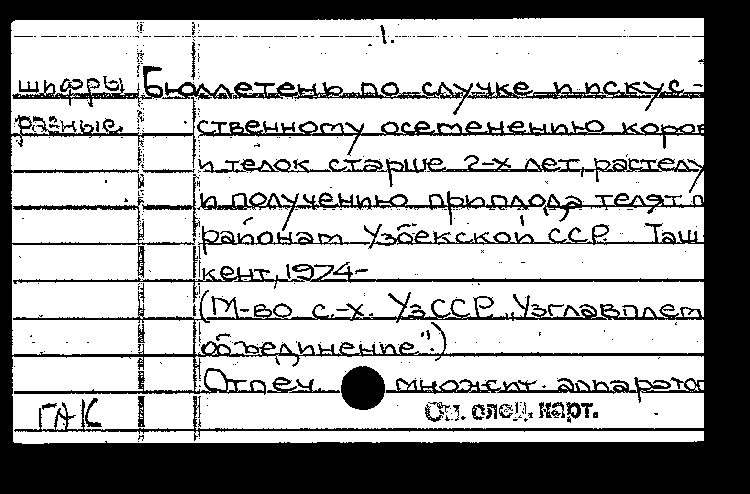 1.
шифры Бюллетень по случке и искус-
разные ственному осеменению коров
и телок старше 2-х лет, растелу
и получению приплода телят п
районам Узбекской ССР. Таш-
кент, 1974-
(М-во с.-х. УзССР. "Узглавплем
объединение".)
Отпеч. множит. аппаратом
ГАК См. след. карт.